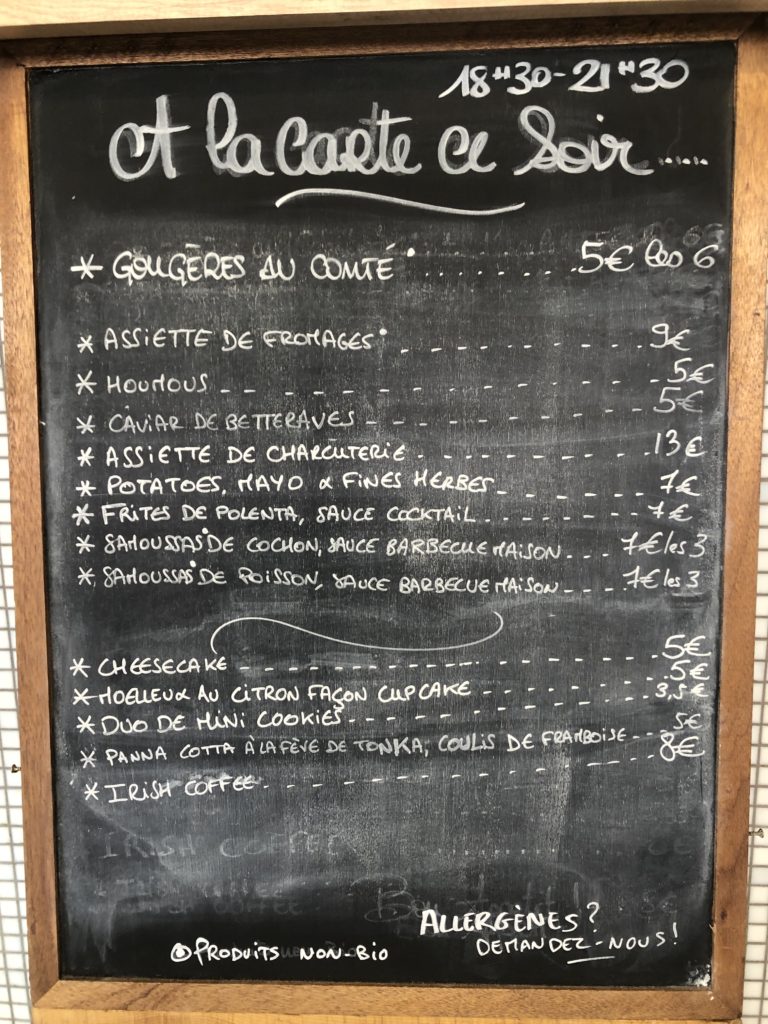 18H30-21H30
A la carte ce Soir......
* GOUGÈRES AU COMTÉ°.........5€ les 6
* ASSIETTE DE FROMAGES° 9€
* HOUMOUS 5€
* CAVIAR DE BETTERAVES 5€
* ASSIETTE DE CHARCUTERIE 13€
* POTATOES, MAYO & FINES HERBES 7€
* FRITES DE POLENTA, SAUCE COCKTAIL 7€
* SAMOUSSAS° DE COCHON, SAUCE BARBECUE MAISON 7€ les 3
* SAMOUSSAS° DE POISSON, SAUCE BARBECUE MAISON 7€ les 3
* CHEESECAKE 5€
* MOELLEUX AU CITRON FAÇON CUPCAKE 5€
* DUO DE MINI COOKIES 3,5€
* PANNA COTTA À LA FÈVE DE TONKA, COULIS DE FRAMBOISE 5€
* IRISH COFFEE 8€
IRISH COFFEE
ALLERGÈNES?
DEMANDEZ-NOUS!
° PRODUITS NON-BIO